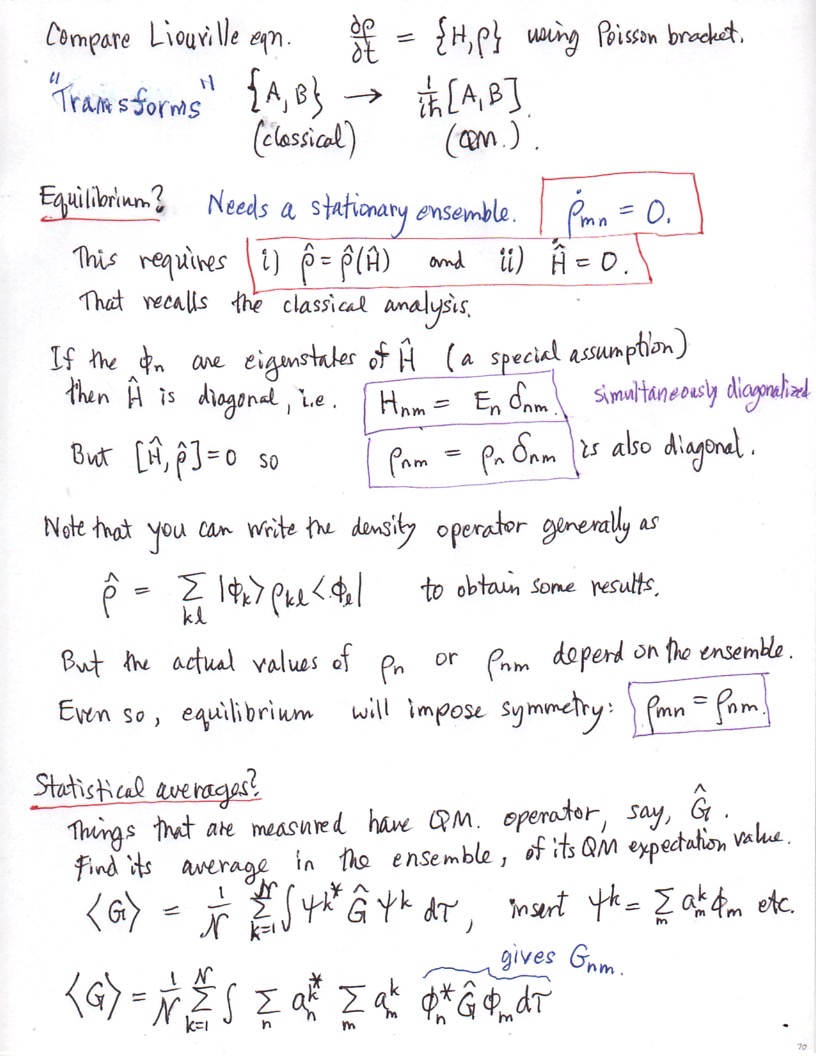 Compare Liouville eqn. ∂ρ/∂t = {H,ρ} using Poisson bracket.
"Transforms" {A,B} → 1/iħ [A,B].
(classical) (QM.).
Equilibrium? Needs a stationary ensemble. ρ̇mn = 0.
This requires i) ρ̂ = ρ̂(Ĥ) and ii) Ĥ̇ = 0.
That recalls the classical analysis.
If the ϕn are eigenstates of Ĥ (a special assumption)
then Ĥ is diagonal, i.e. Hnm = En δnm. simultaneously diagonalized
But [Ĥ,ρ̂]=0 so ρnm = ρn δnm is also diagonal.
Note that you can write the density operator generally as
ρ̂ = Σkl |ϕk> ρkl <ϕl| to obtain some results.
But the actual values of ρn or ρnm depend on the ensemble.
Even so, equilibrium will impose symmetry: ρmn = ρnm.
Statistical averages?
Things that are measured have QM. operator, say, Ĝ.
Find its average in the ensemble, of its QM expectation value.
⟨G⟩ = 1/𝒩 Σ(k=1 to 𝒩) ∫ ψ^k* Ĝ ψ^k dτ, insert ψ^k = Σm a_m^k ϕm etc.
gives Gnm.
⟨G⟩ = 1/𝒩 Σ(k=1 to 𝒩) ∫ Σn a_n^k* Σm a_m^k ϕn* Ĝ ϕm dτ
70